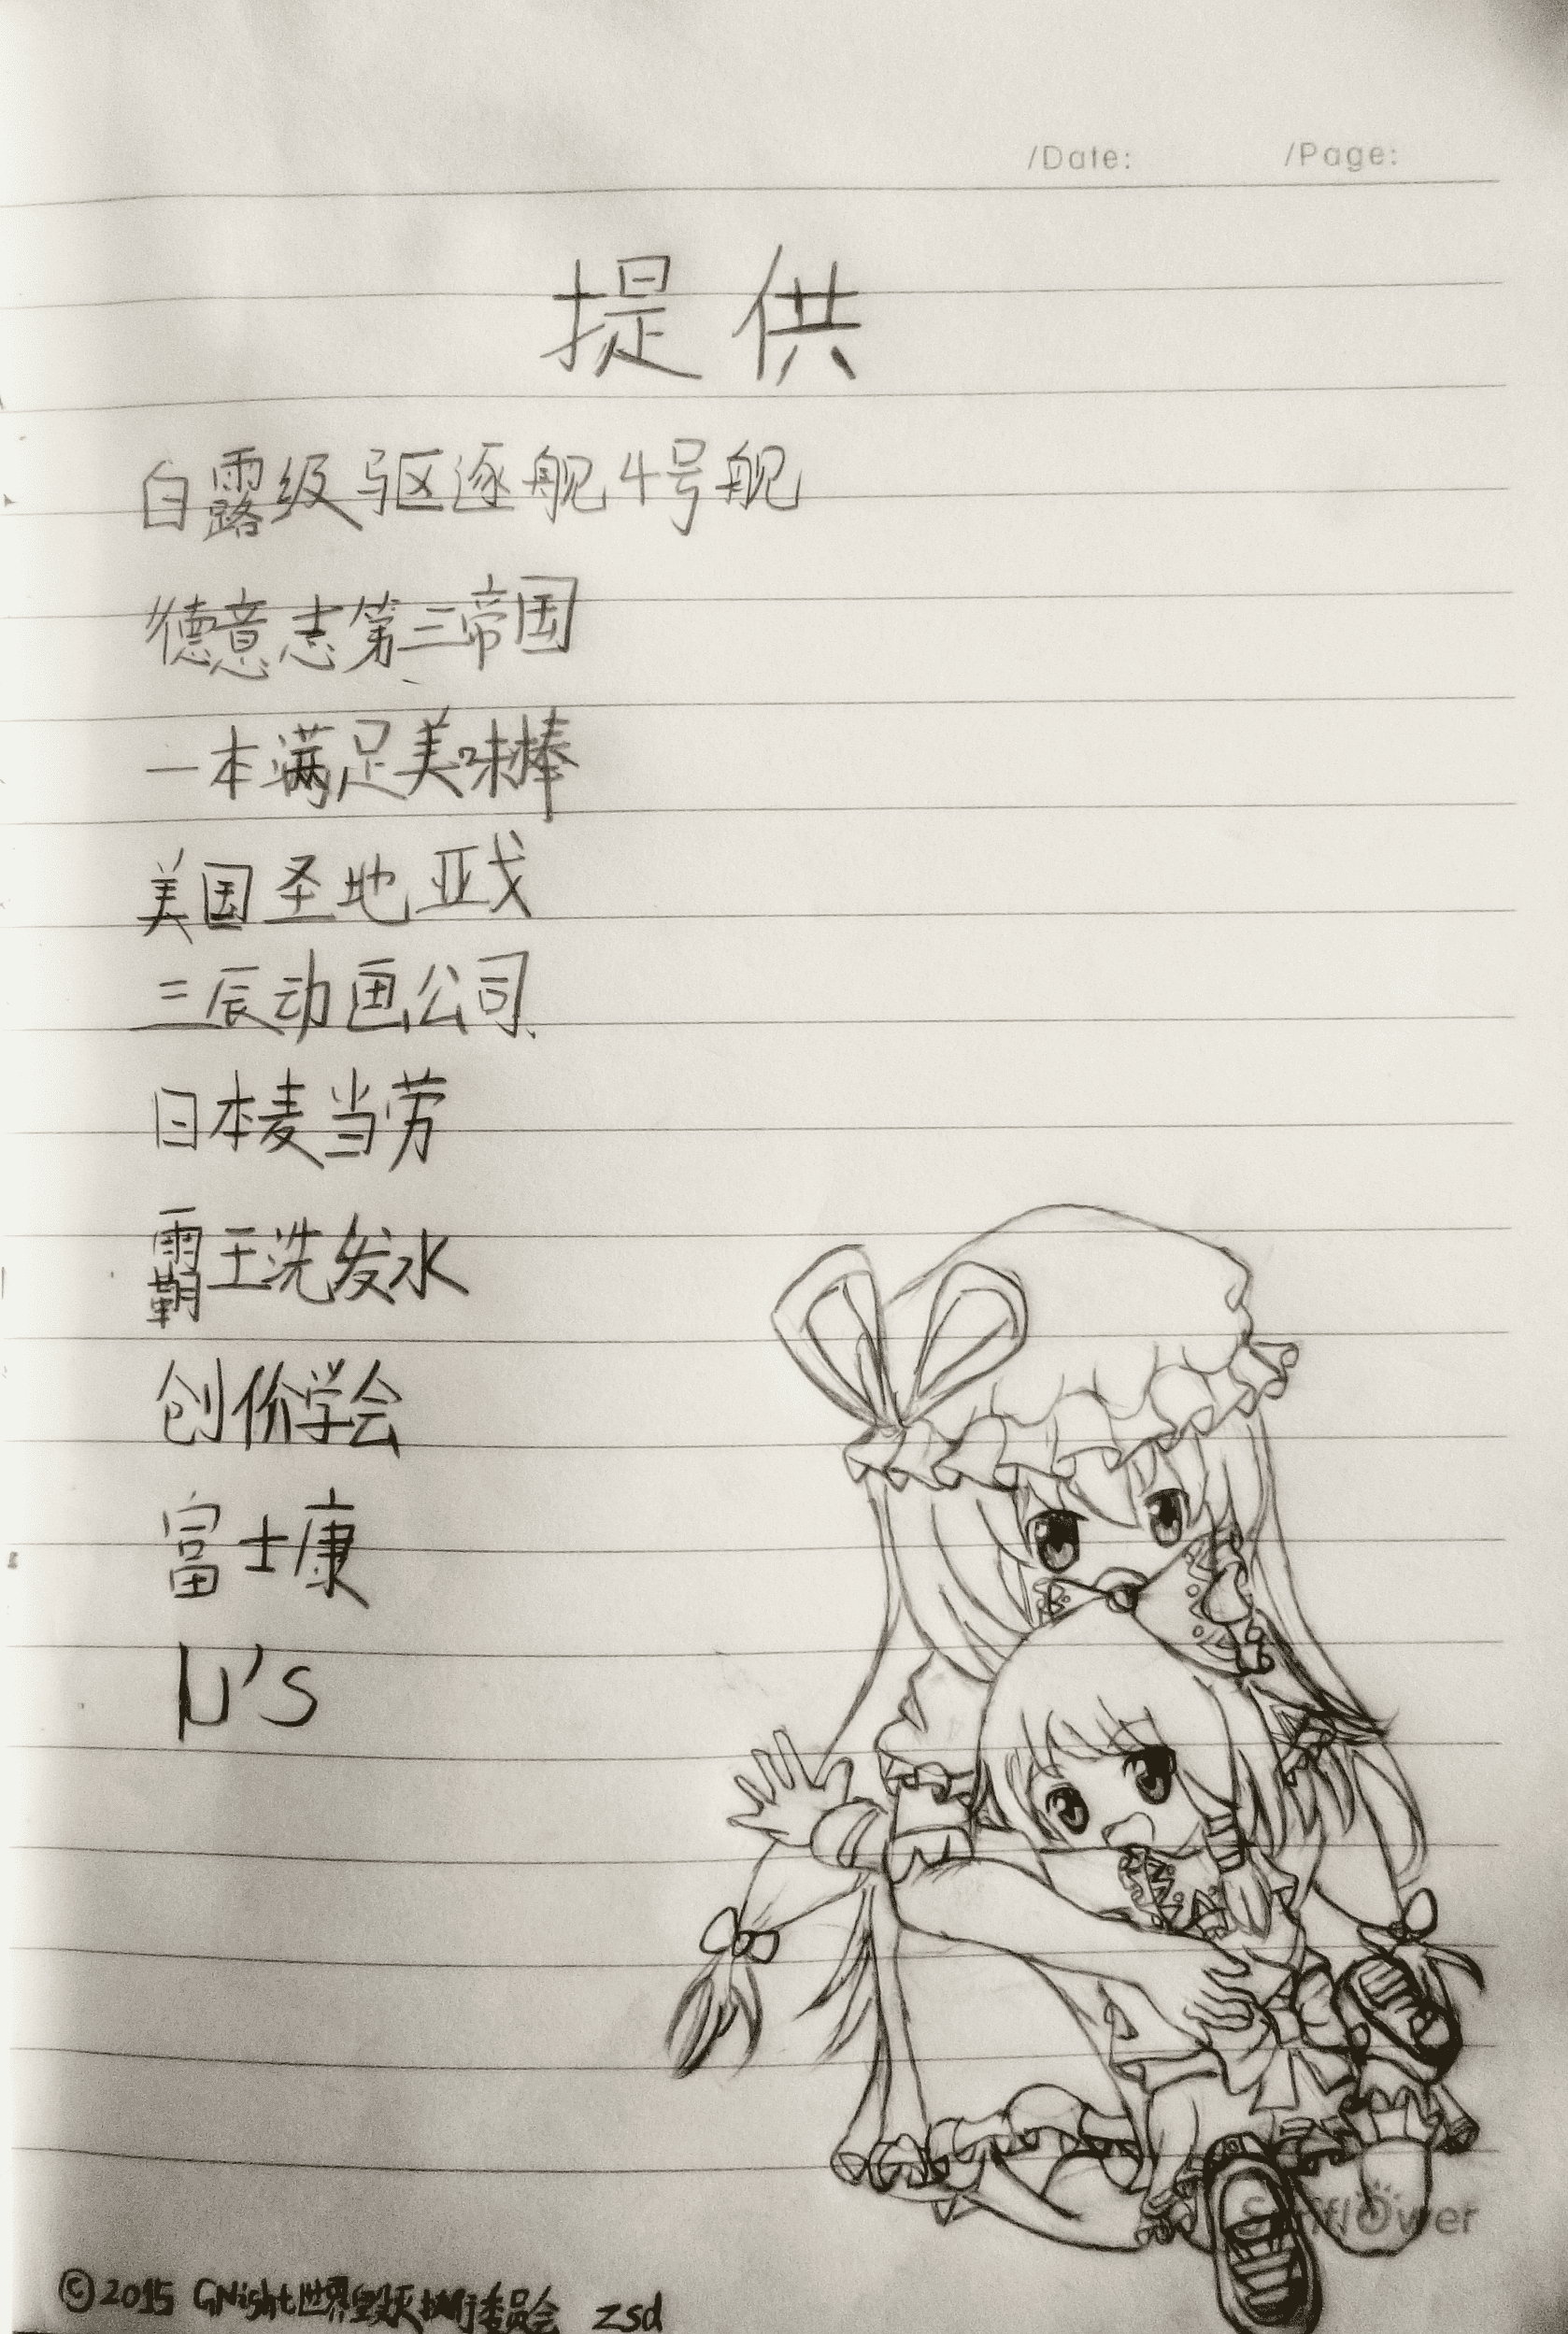 /Date: /Page:
提供
白露级驱逐舰4号舰
德意志第三帝国
一本满足美味棒
美国圣地亚戈
三辰动画公司
日本麦当劳
霸王洗发水
创价学会
富士康
μ's
©2015 GNight世界毁灭执行委员会 zsd